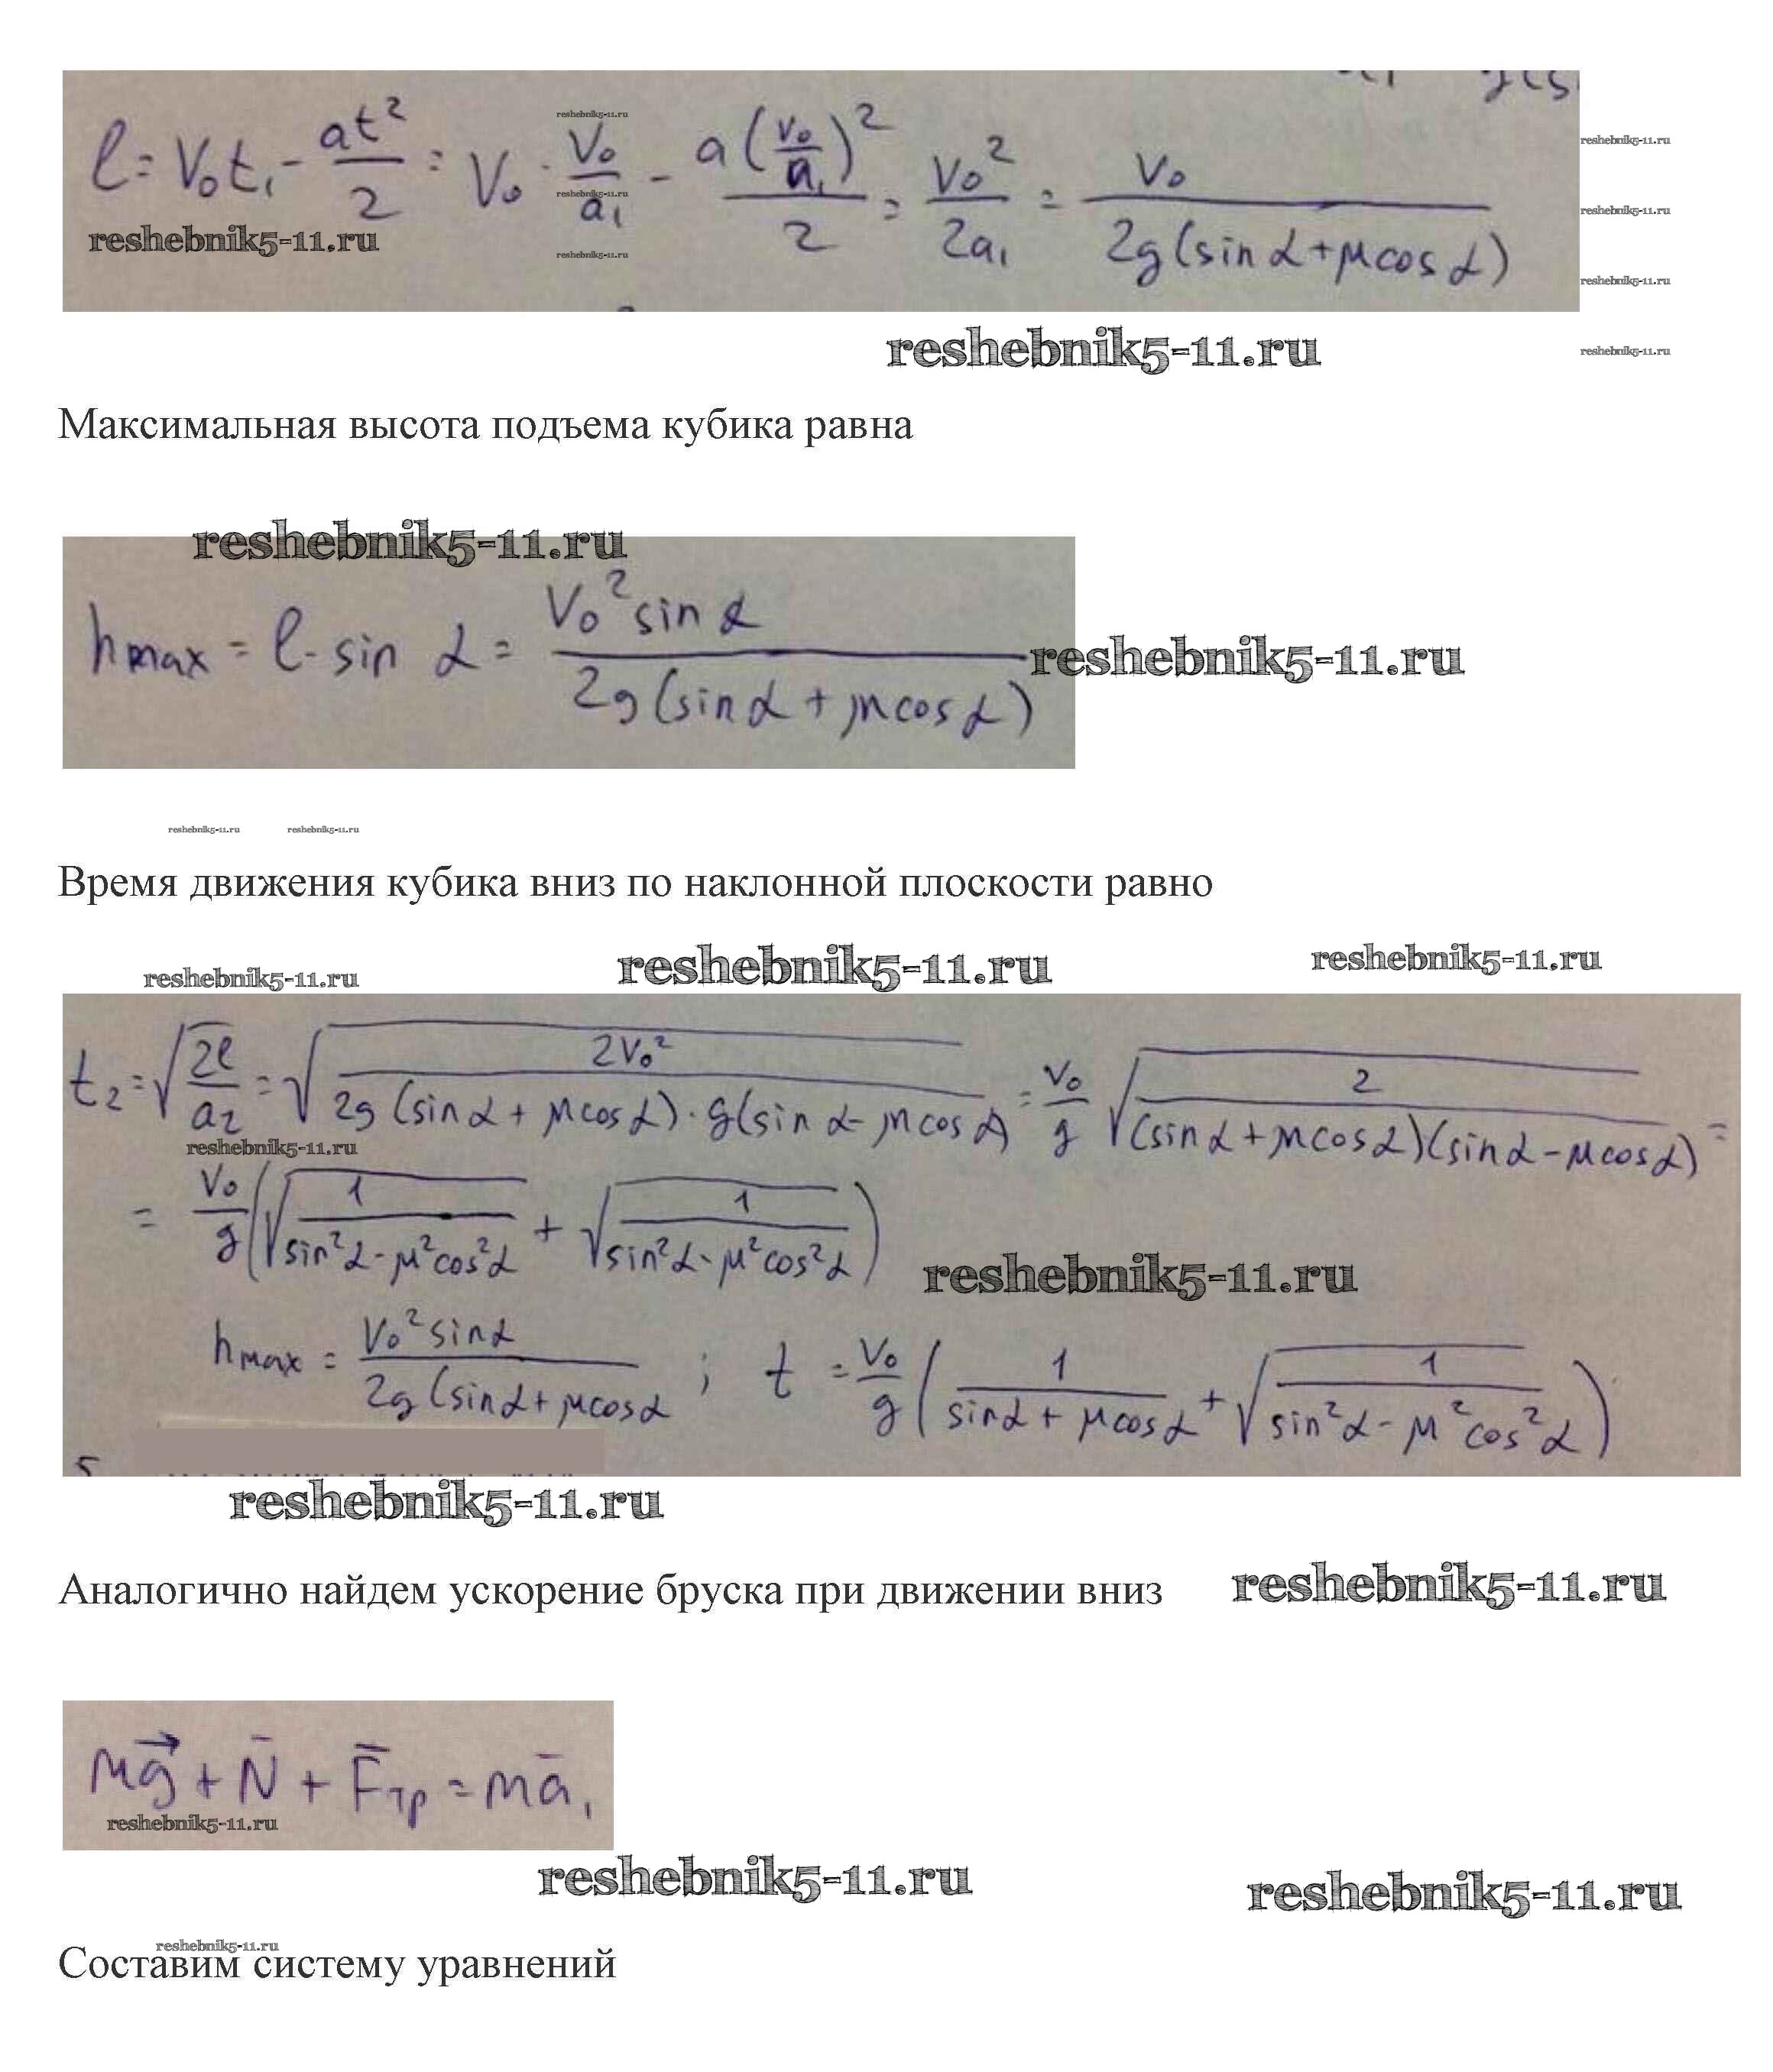 l = V₀t₁ - at²/2 = V₀ · V₀/a₁ - a(V₀/a₁)²/2 = V₀²/2a₁ = V₀/2g(sin α + μcos α)
reshebnik5-11.ru
reshebnik5-11.ru
reshebnik5-11.ru
reshebnik5-11.ru
reshebnik5-11.ru
reshebnik5-11.ru
reshebnik5-11.ru
reshebnik5-11.ru
reshebnik5-11.ru
Максимальная высота подъема кубика равна
reshebnik5-11.ru
h max = l · sin α = V₀² sin α/2g(sin α + μcos α)
reshebnik5-11.ru
reshebnik5-11.ru reshebnik5-11.ru
Время движения кубика вниз по наклонной плоскости равно
reshebnik5-11.ru reshebnik5-11.ru reshebnik5-11.ru
t₂ = √(2l/a₂) = √(2V₀²/2g(sin α + μcos α) · g(sin α - μcos α)) = V₀/g √(2/(sin α + μcos α)(sin α - μcos α)) =
reshebnik5-11.ru
= V₀/g (√(1/sin²α - μ²cos²α) + √(1/sin²α - μ²cos²α))
reshebnik5-11.ru
h max = V₀² sin α/2g(sin α + μcos α ; t = V₀/g (1/sin α + μcos α + √(1/sin²α - μ²cos²α))
reshebnik5-11.ru
Аналогично найдем ускорение бруска при движении вниз
reshebnik5-11.ru
mg⃗ + N̄ + F̄тр = mā₁
reshebnik5-11.ru
reshebnik5-11.ru reshebnik5-11.ru
reshebnik5-11.ru
Составим систему уравнений